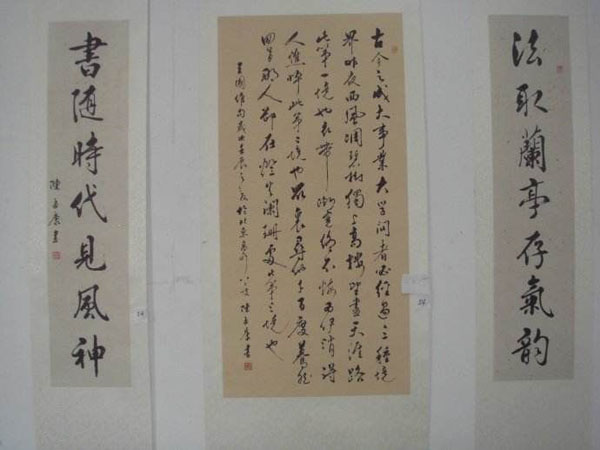 法取蘭亭存氣韵
古今之成大事業大学問者必經過三種境
界昨夜西風凋碧樹獨上高樓望盡天涯路
此第一境也衣帶漸寬終不悔爲伊消得
人憔悴此第二境也眾裏尋他千百度驀然
回首那人卻在燈火闌珊處此第三境也
王國維句歲次壬辰之夏於北京
書隨時代見風神